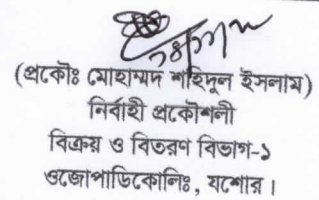 (প্রকৌঃ মোহাম্মদ শহিদুল ইসলাম)
নির্বাহী প্রকৌশলী
বিক্রয় ও বিতরণ বিভাগ-১
ওজোপাডিকোলিঃ, যশোর।